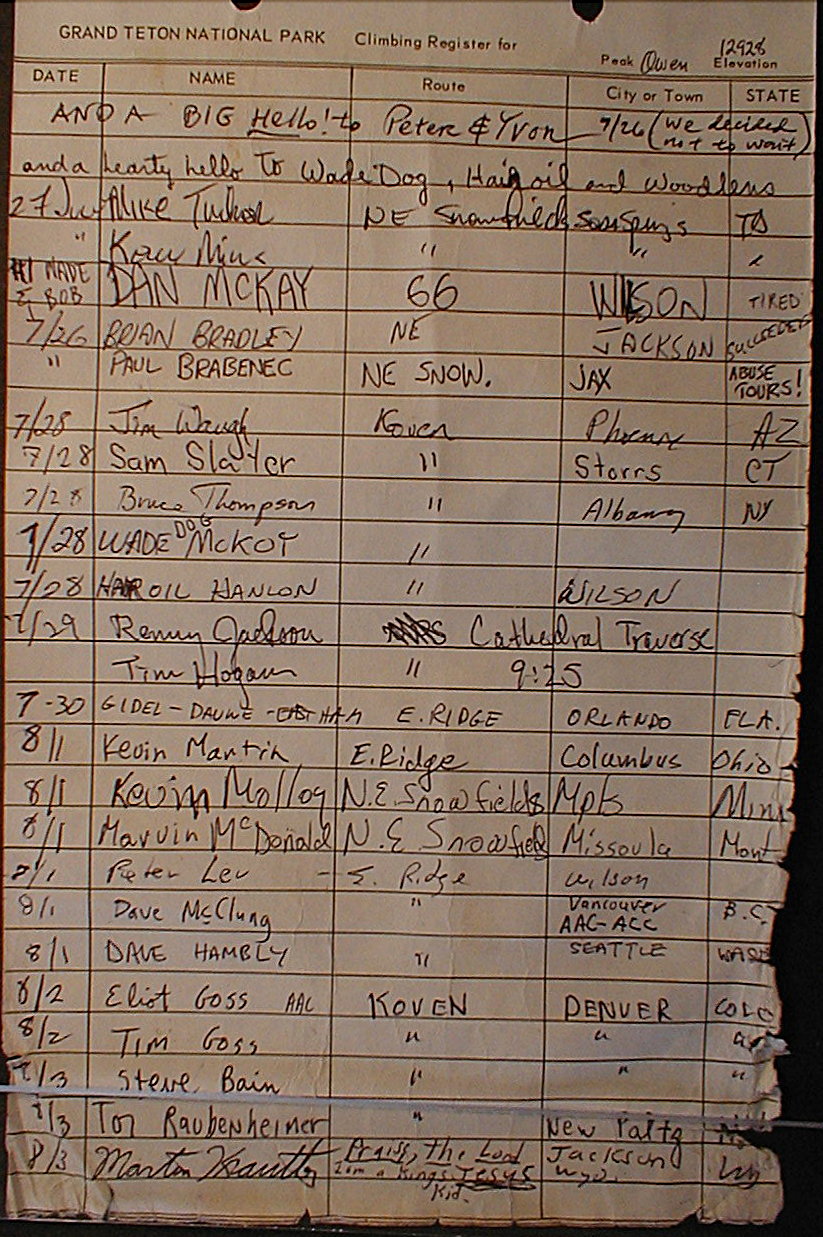 GRAND TETON NATIONAL PARK Climbing Register for Peak Owen 12928 Elevation
DATE NAME Route City or Town STATE
AND A BIG Hello! to Peter & Yvon 7/26 (we decided not to wait)
and a hearty hello To Wade Dog, Hair oil and Woodlens
27 July Mike NE Snowfields
" " "
DAN MCKAY 66 WILSON TIRED
& BOB
7/26 BRIAN BRADLEY NE JACKSON
" PAUL BRABENEC NE SNOW. JAX ABUSE TOURS!
7/28 Jim Waugh Koven Phoenix AZ
7/28 Sam Slater " Storrs CT
7/28 Bruce Thompson " Albany NY
7/28 WADE DOG McKOY "
7/28 HAROIL HANLON " WILSON
7/29 Renny Jackson Cathedral Traverse
Tim Hogan " 9:25
7-30 GIDEL-DAUWE-EASTHAM E.RIDGE ORLANDO FLA.
8/1 Kevin Martin E.Ridge Columbus Ohio
8/1 Kevin Molloy N.E. Snowfields Mpls Minn
8/1 Marvin McDonald N.E Snowfield Missoula Mont
8/1 Peter Lev - E. Ridge Wilson
8/1 Dave McClung " Vancouver AAC-ACC B.C.
8/1 DAVE HAMBLY " SEATTLE WASH
8/2 Eliot Goss AAC KOVEN DENVER COLO
8/2 Tim Goss " " "
8/3 Steve Bain " " "
8/3 Tor Raubenheimer " New Paltz
8/3 Martin Praise, the Lord Jackson
I am a Kings Jesus Wyo.
Kid.